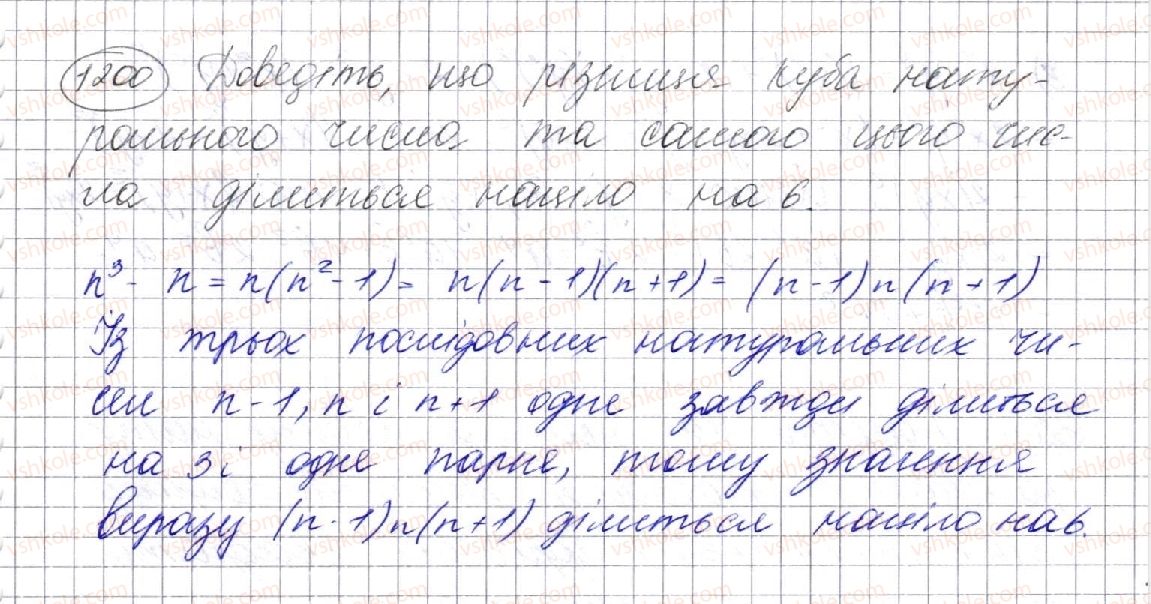 1200 Доведіть, що різниця куба нату-
рального числа та самого цього чис-
ла ділиться націло на 6.
n³ - n = n(n² - 1) = n(n - 1)(n + 1) = (n - 1)n(n + 1)
Із трьох послідовних натуральних чи-
сел n - 1, n і n + 1 одне завжди ділиться
на 3 і одне парне, тому значення
виразу (n - 1)n(n + 1) ділиться націло на 6.